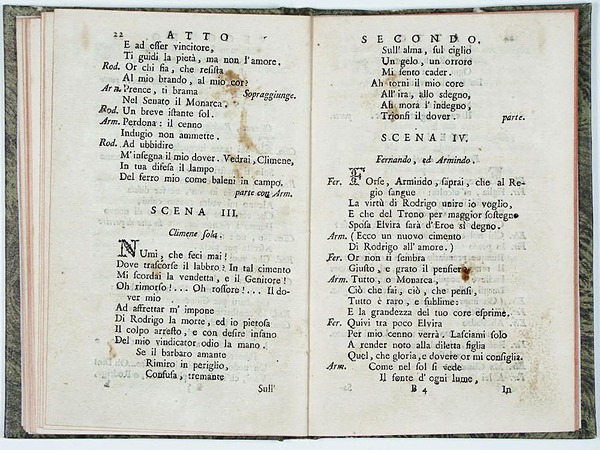 22 ATTO
E ad esser vincitore,
Ti guidi la pietà, ma non l'amore.
Rod. Or chi fia, che resista
Al mio brando, al mio cor?
Arm. Prence, ti brama Sopraggiunge.
Nel Senato il Monarca.
Rod. Un breve istante sol.
Arm. Perdona: il cenno
Indugio non ammette.
Rod. Ad ubbidire
M'insegna il mio dover. Vedrai, Climene,
In tua difesa il lampo
Del ferro mio come baleni in campo.
parte con Arm.
SCENA III.
Climene sola.
NUmi, che feci mai!
Dove trascorse il labbro? In tal cimento
Mi scordai la vendetta, e il Genitore!
Oh rimorso!... Oh rossore!... Il do-
ver mio
Ad affrettar m' impone
Di Rodrigo la morte, ed io pietosa
Il colpo arresto, e con desire insano
Del mio vindicator odio la mano.
Se il barbaro amante
Rimiro in periglio,
Confusa, tremante
Sull'
SECONDO.
Sull' alma, sul ciglio
Un gelo, un orrore
Mi sento cader.
Ah torni il mio core
All' ira, allo sdegno,
Ah mora l' indegno,
Trionfi il dover. parte.
SCENA IV.
Fernando, ed Armindo.
Fer. FOrse, Armindo, saprai, che al Re-
gio sangue
La virtù di Rodrigo unire io voglio,
E che del Trono per maggior sostegno
Sposa Elvira sarà d'Eroe sì degno.
Arm. (Ecco un nuovo cimento
Di Rodrigo all' amore.)
Fer. Or non ti sembra
Giusto, e grato il pensiero?
Arm. Tutto, o Monarca,
Ciò che fai, ciò, che pensi,
Tutto è raro, e sublime:
E la grandezza del tuo core esprime.
Fer. Quivi tra poco Elvira
Per mio cenno verrà. Lasciami solo
A render noto alla diletta figlia
Quel, che gloria, e dovere or mi consiglia.
Arm. Come nel sol si vede
Il fonte d' ogni lume,
B 4 In